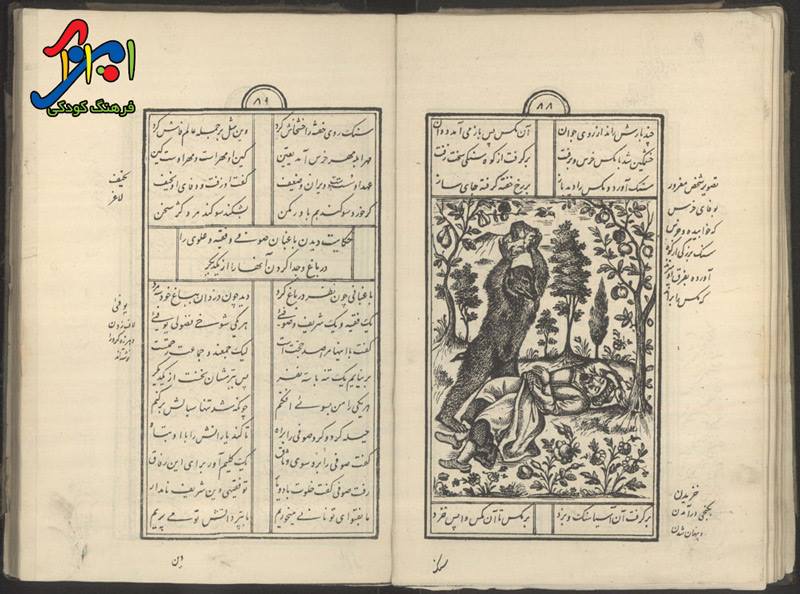 ایران
فرهنگ کودکی
۸۸
چند بارش راند از روی جوان آن مگس پس باز می آمد دوان
خشمگین شد با مگس خرس و برفت بر گرفت از کوه سنگی سخت زفت
سنگ آورد و مگس را دید باز بر رخ خفته گرفته جای ساز
تصویر شخص مغرور
بوفای خرس
که خوابیده و خرس
سنگ بزرگی از کوه
آورده
بر گرفت آن آسیا سنگ و بزد بر مگس تا آن مگس واپس خزد
خزیدن
بکنجی درآمدن
و پنهان شدن
۸۹
سنگ روی خفته را خشخاش کرد وین مثل بر جمله عالم فاش کرد
مهر ابله مهر خرس آمد یقین کین او مهر است و مهر اوست کین
عهد او سست است و ویران و ضعیف گفت او زفت و وفای او نحیف
گر خورد سوگند هم باور مکن بشکند سوگند مرد کژ سخن
نحیف
لاغر
حکایت دیدن باغبان صوفی و فقیه و علوی را
در باغ و جدا کردن آنها را از یکدیگر
باغبانی چون نظر در باغ کرد دید چون دزدان بباغ خود سه مرد
یک فقیه و یک شریف و صوفیی هر یکی شوخی فضولی یوفیی
گفت با اینها مرا صد حجت است لیک جمعند و جماعت رحمت
بر نیایم یک تنه با سه نفر پس ببرمشان نخست از یکدیگر
هر یکی را من بسوئی افکنم چونکه شد تنها سبالش بر کنم
حیله کرد و کرد صوفی را براه تا کند یارانش را با او تباه
گفت صوفی را برو سوی وثاق یک گلیم آور برای این رفاق
رفت صوفی گفت خلوت با دو یار تو فقیهی وین شریف نامدار
ما بفتوای تو نانی میخوریم ما به پر دانش تو می پریم
یوفی
لاف زدن